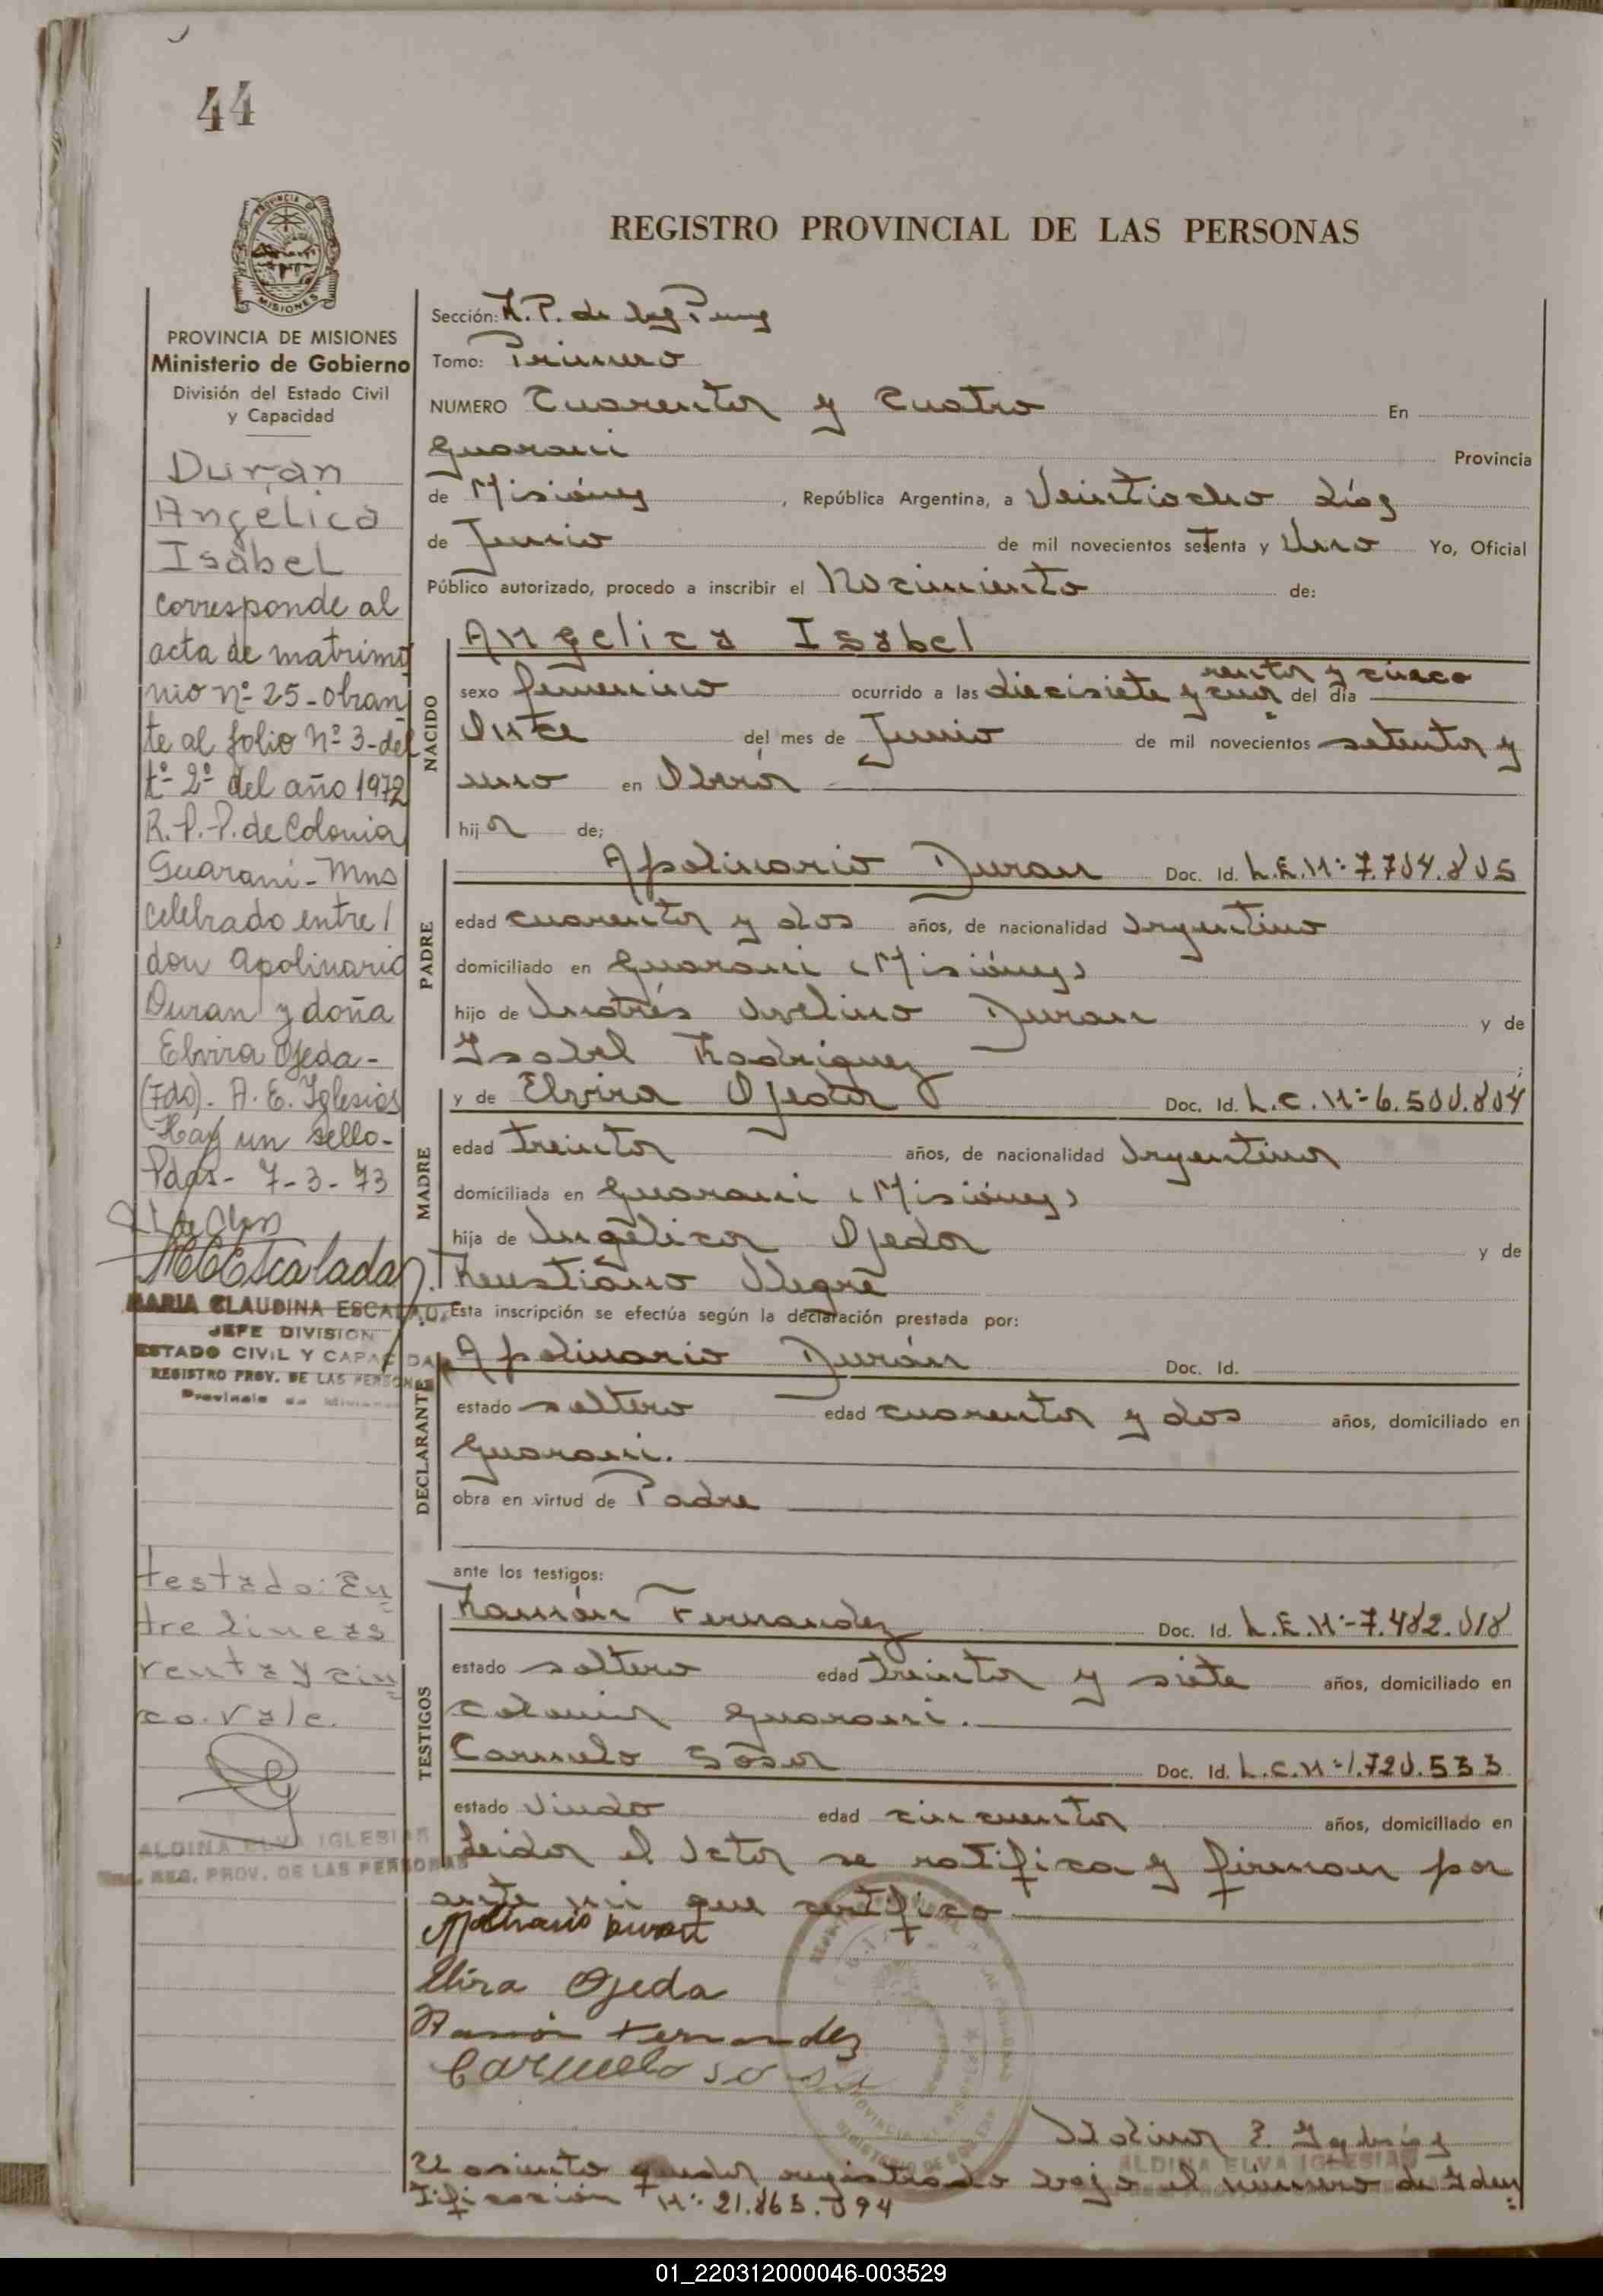 44
REGISTRO PROVINCIAL DE LAS PERSONAS
PROVINCIA DE MISIONES
Ministerio de Gobierno
División del Estado Civil
y Capacidad
Durán
Angélica
Isabel
corresponde al
acta de matrimo
nio nº 25-obran
te al folio nº 3-del
tº 2º del año 1972
R.P.P. de Colonia
Guaraní-Mns
celebrado entre/
don Apolinario
Duran y doña
Elvira Ojeda-
(Fdo). A. E. Iglesias
Hay un sello-
Pdas- 7-3-73
MCEscalada
MARIA CLAUDINA ESCALADA
JEFE DIVISION
ESTADO CIVIL Y CAPACIDAD
REGISTRO PROV. DE LAS PERSONAS
Provincia de Misiones
testado: En
tre lineas
renta y cin
co. Vale.
ALDINA ELVA IGLESIAS
REG. PROV. DE LAS PERSONAS
Sección: R.P. de las
Tomo: Primero
NUMERO Cuarenta y Cuatro En
Guarani Provincia
de Misiónes, República Argentina, a Veintiocho días
de Junio de mil novecientos setenta y Uno Yo, Oficial
Público autorizado, procedo a inscribir el Nacimiento de:
NACIDO
Angelica Isabel
renta y cinco
sexo femenino ocurrido a las diecisiete y cua del día
Once del mes de Junio de mil novecientos setenta y
uno en Oberá
hija de;
PADRE
Apolinario Duran Doc. Id. L.E.Nº 7.704.805
edad cuarenta y dos años, de nacionalidad Argentino
domiciliado en Guarani (Misiónes)
hijo de Andrés Avelino Duran y de
Isabel Rodriguez;
MADRE
y de Elvira Ojeda Doc. Id. L.C.Nº 6.500.804
edad treinta años, de nacionalidad Argentina
domiciliada en Guarani (Misiónes)
hija de Angélica Ojeda y de
Alegre
Esta inscripción se efectúa según la declaración prestada por:
DECLARANTE
Apolinario Durán Doc. Id.
estado soltero edad cuarenta y dos años, domiciliado en
Guarani.
obra en virtud de Padre
ante los testigos:
TESTIGOS
Ramón Fernandez Doc. Id. L.E.Nº-7.482.018
estado soltero edad treinta y siete años, domiciliado en
colonia Guarani.
Carmelo Sosa Doc. Id. L.C.Nº 1.720.533
estado Viudo edad cincuenta años, domiciliado en
Leida el Acta se ratifica y firman por
ante mi que certifico
Apolinario Duran
Elvira Ojeda
Ramón Fernandez
Carmelo sosa
Aldina E. Iglesias
ALDINA ELVA IGLESIAS
El asiento queda registrado bajo el número de Iden
tificación Nº 21.863.094
01_220312000046-003529